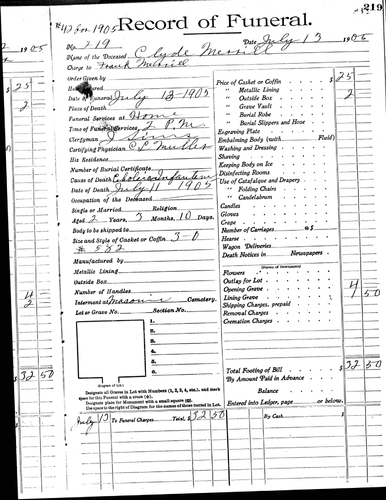 219
#42 for 1905
Record of Funeral.
No. 219 Date July 13 1905
Name of the Deceased Clyde Merrill
Charge to Frank Merrill
Order Given by
How Secured
Date of Funeral July 13-1905
Place of Death
Funeral Services at Home
Time of Funeral Services 2 P.M.
Clergyman J Sims
Certifying Physician
His Residence
Number of Burial Certificate
Cause of Death Cholera Infantum
Date of Death July 11 1905
Occupation of the Deceased
Single or Married Religion
Aged 2 Years, 3 Months, 10 Days.
Body to be shipped to
Size and Style of Casket or Coffin 3-0
# 582
Manufactured by
Metallic Lining
Outside Box
Number of Handles
Interment at Masonic Cemetery.
Lot or Grave No. Section No.
1.
2.
3.
4.
5.
6.
(Diagram of Lot.)
Designate all Graves in Lot with Numbers (1, 2, 3, 4, etc.), and mark
space for this Funeral with a cross (+).
Designate place for Monument with a small square
Use space to the right of Diagram for the names of those buried in Lot.
July 13 To Funeral Charges Total, $ 32 50
Price of Casket or Coffin $ 25
" Metallic Lining
" Outside Box 2
" Grave Vault
" Burial Robe
" Burial Slippers and Hose
Engraving Plate
Embalming Body (with Fluid)
Washing and Dressing
Shaving
Keeping Body on Ice
Disinfecting Rooms
Use of Catafalque and Drapery
" Folding Chairs
" Candelabrum
Candles
Gloves
Crape
Number of Carriages @ $
Hearse
Wagon Deliveries
Death Notices in Newspapers
Flowers
Outlay for Lot
Opening Grave 4
Lining Grave 1 50
Shipping Charges, prepaid
Removal Charges
Cremation Charges
Total Footing of Bill $ 32 50
By Amount Paid in Advance
Balance
Entered into Ledger, page or below.
By Cash $